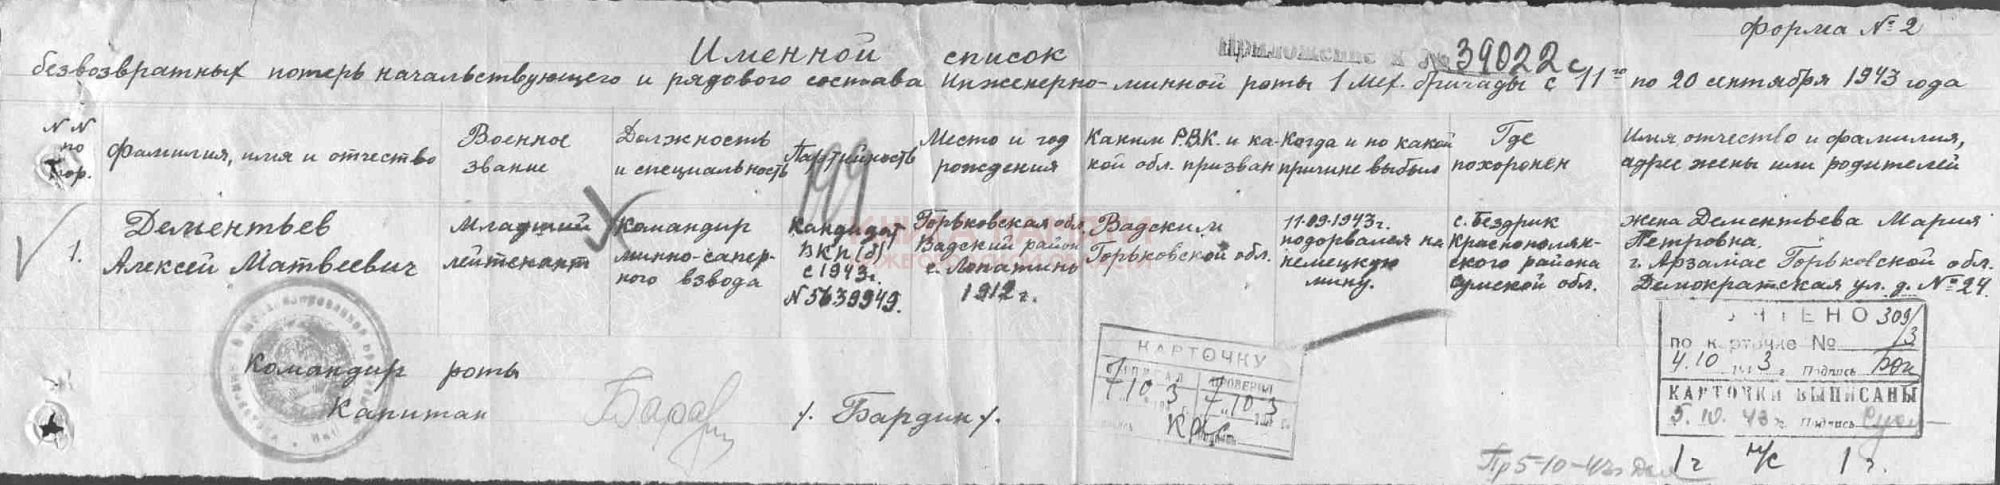 Форма № 2
Именной список
Приложение к № 39022 с
безвозвратных потерь начальствующего и рядового состава Инженерно-минной роты 1 Мех. бригады с 11го по 20 сентября 1943 года
N N по пор.
Фамилия, имя и отчество
Военное звание
Должность и специальность
Партийность
Место и год рождения
Каким Р.В.К. и какой обл. призван
Когда и по какой причине выбыл
Где похоронен
Имя отчество и фамилия, адрес жены или родителей
1.
Дементьев
Алексей Матвеевич
Младший
лейтенант
Командир
минно-сапер-
ного взвода
Кандидат
ВКП(б)
с 1943г.
N 5639949.
Горьковская обл.
Вадский район
с. Лопатино
1912 г.
Вадским
Горьковской обл.
11.09.1943г.
подорвался на
немецкую
мину.
с. Бездрик
Краснополян-
ского района
Сумской обл.
жена Дементьева Мария
Петровна.
г. Арзамас Горьковской обл.
Демократская ул. д. № 24.
Командир роты
Капитан
/. Бардин /.
КАРТОЧКУ
ВЫПИСАЛ
ПРОВЕРИЛ
7 10 3
7 10 3
УЧТЕНО 309/3
по карточке №
4.10 1943 г. Подпись
КАРТОЧКИ ВЫПИСАНЫ
5.10. 43 г. Подпись
1 г н/с 1 г.